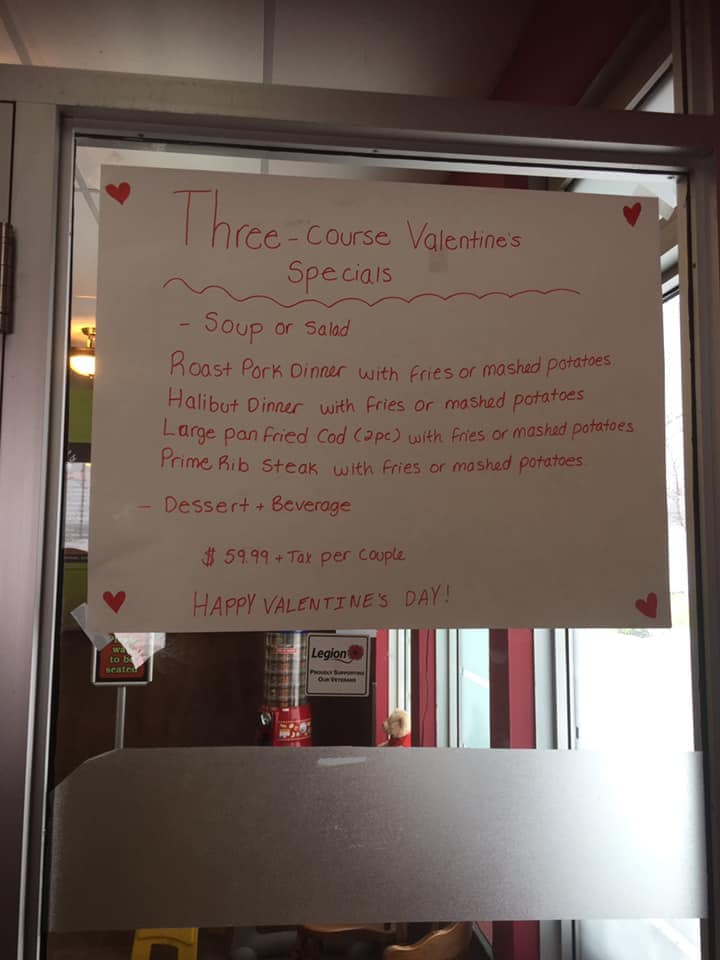 Three-Course Valentine's
Specials
- Soup or Salad
Roast Pork Dinner with fries or mashed potatoes.
Halibut Dinner with fries or mashed potatoes
Large pan fried Cod (2pc) with fries or mashed potatoes
Prime Rib Steak with fries or mashed potatoes.
- Dessert + Beverage
$ 59.99 + Tax per Couple
HAPPY VALENTINE'S DAY!
Legion
PROUDLY SUPPORTING
OUR VETERANS
to be
seated